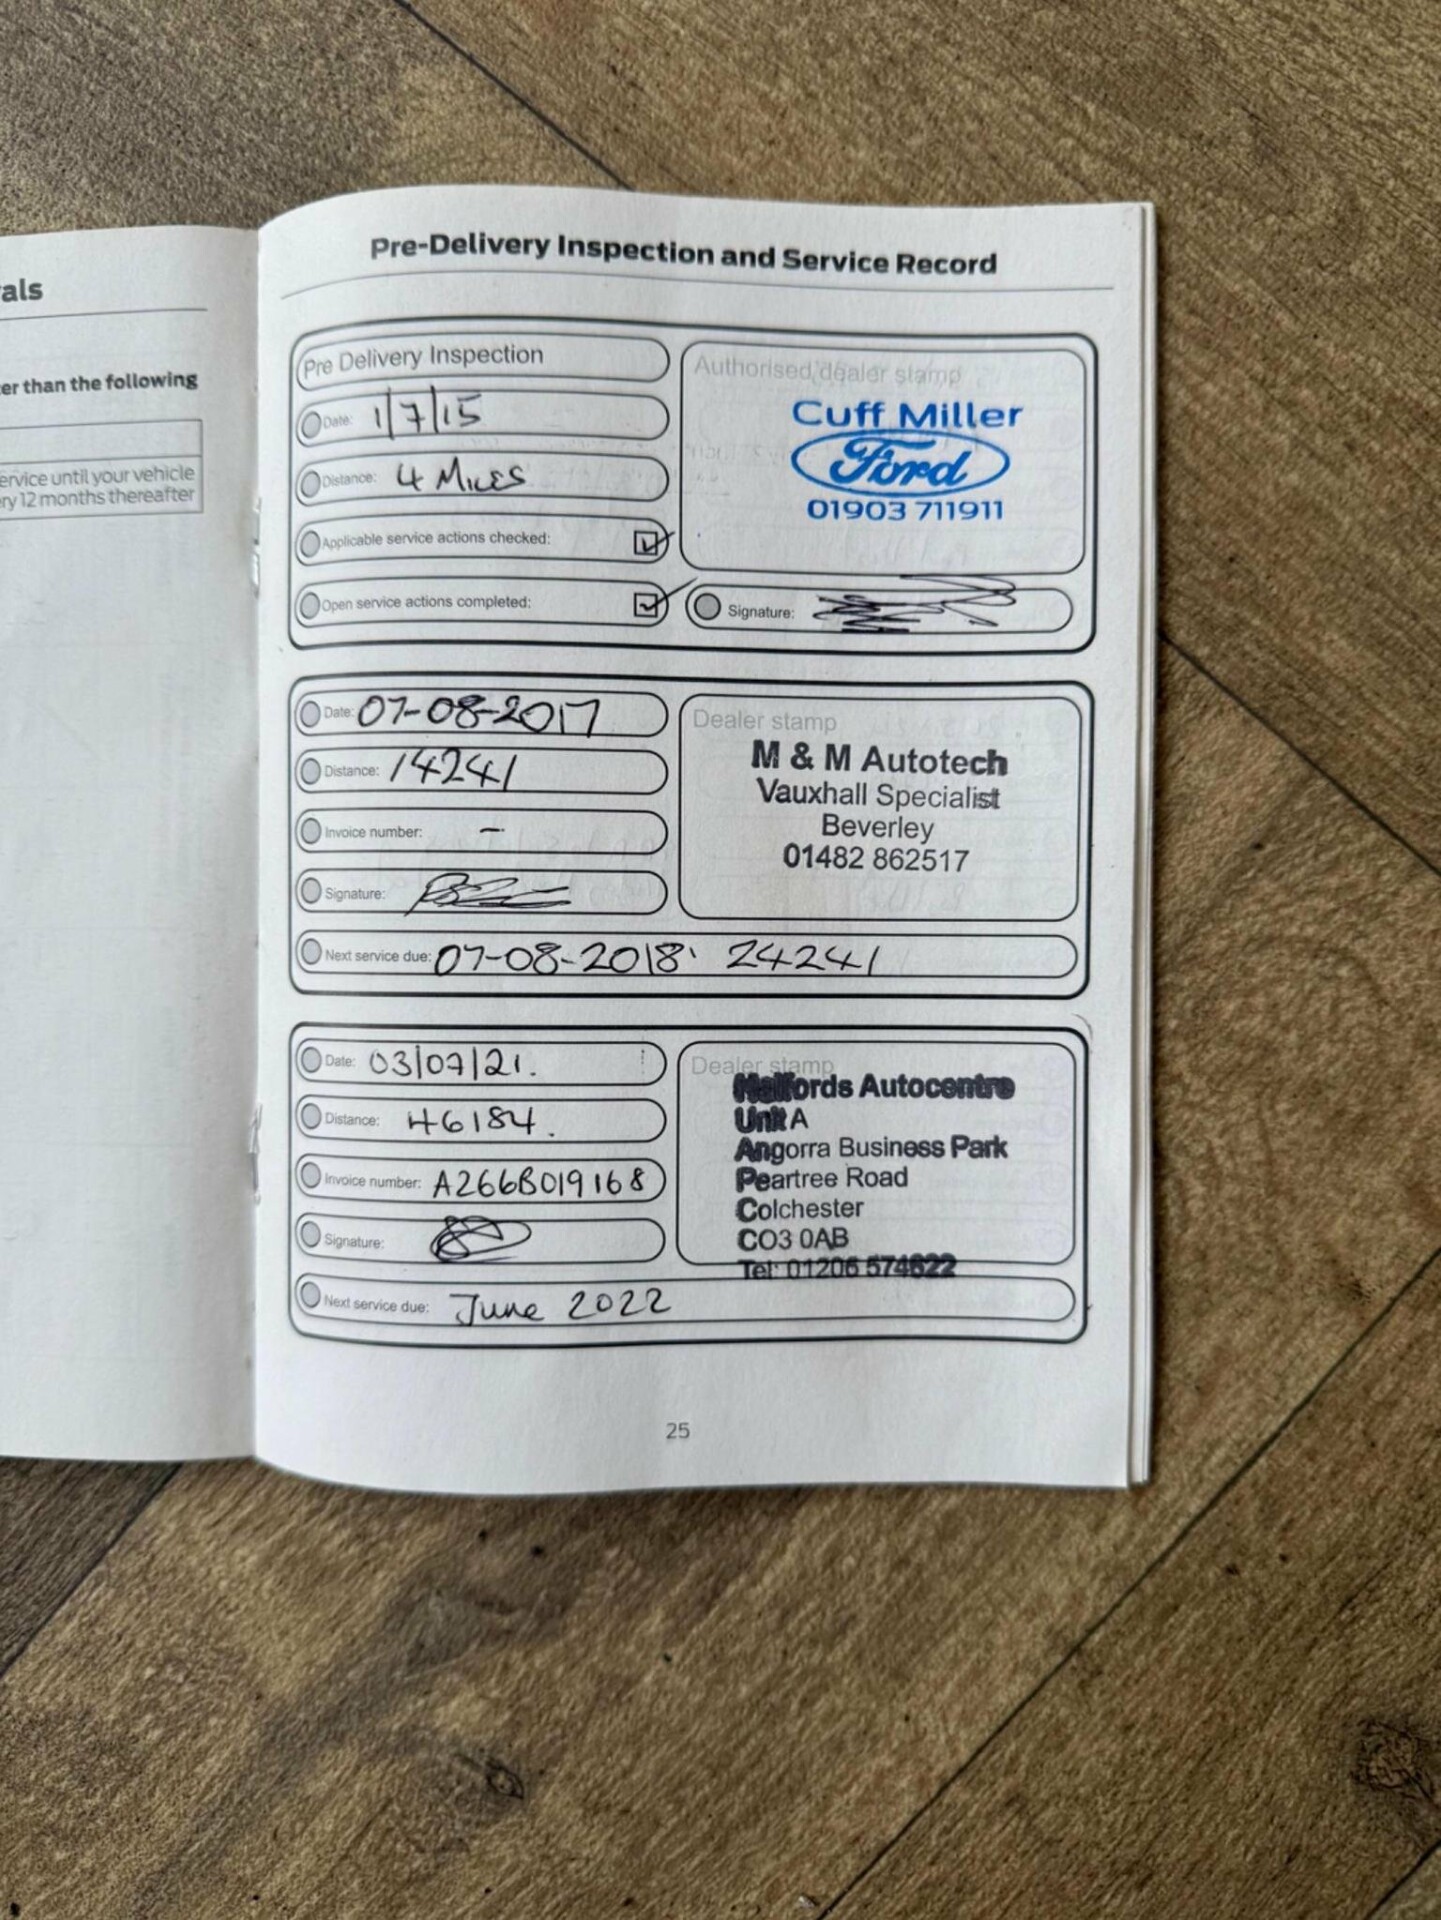 als
er than the following
ervice until your vehicle
ry 12 months thereafter
Pre-Delivery Inspection and Service Record
Pre Delivery Inspection
Date: 1/7/15
Distance: 4 MILES
Applicable service actions checked:
Open service actions completed:
Authorised dealer stamp
Cuff Miller
Ford
01903 711911
Signature:
Date: 07-08-2017
Distance: 14241
Invoice number: -
Signature:
Next service due: 07-08-2018 24241
Dealer stamp
M & M Autotech
Vauxhall Specialist
Beverley
01482 862517
Date: 03/07/21.
Distance: 46184.
Invoice number: A266B019168
Signature:
Next service due: June 2022
Dealer stamp
Halfords Autocentre
Unit A
Angorra Business Park
Peartree Road
Colchester
CO3 0AB
Tel: 01206 574622
25